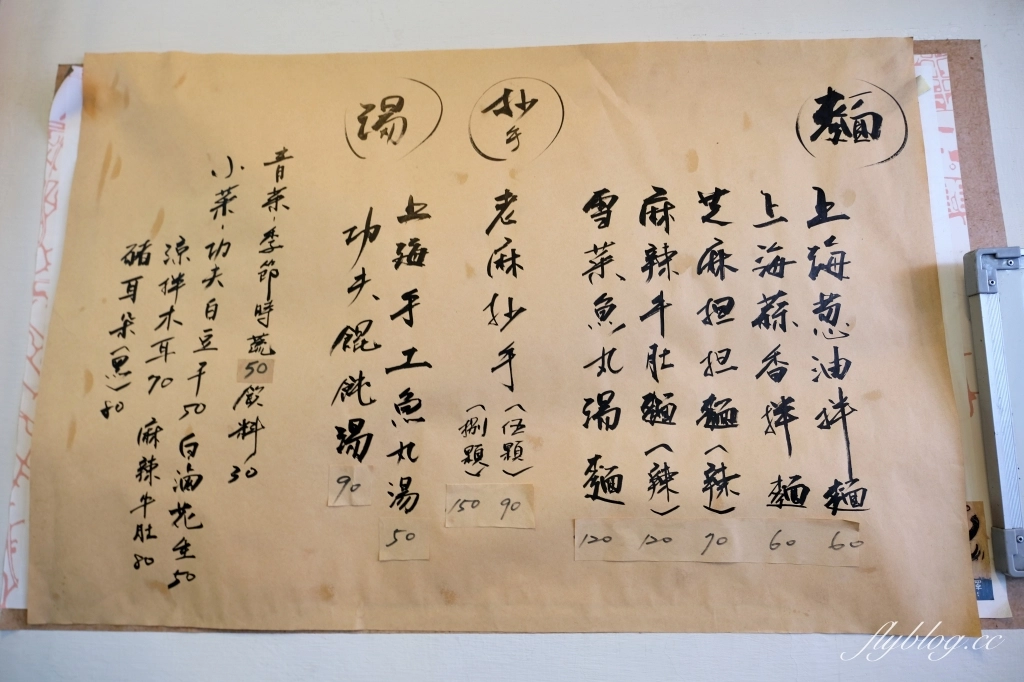 麵
上海葱油拌麵 60
上海蒜香拌麵 60
芝麻担担麵(辣) 70
麻辣牛肚麵(辣) 120
雪菜魚丸湯麵 120
抄手
老麻抄手(伍顆) 90
(捌顆) 150
湯
上海手工魚丸湯 50
功夫餛飩湯 90
青菜·季節時蔬50 飲料30
小菜·功夫白豆干50 白滷花生50
涼拌木耳70 麻辣牛肚80
豬耳朵(熏)80
flyblog.cc